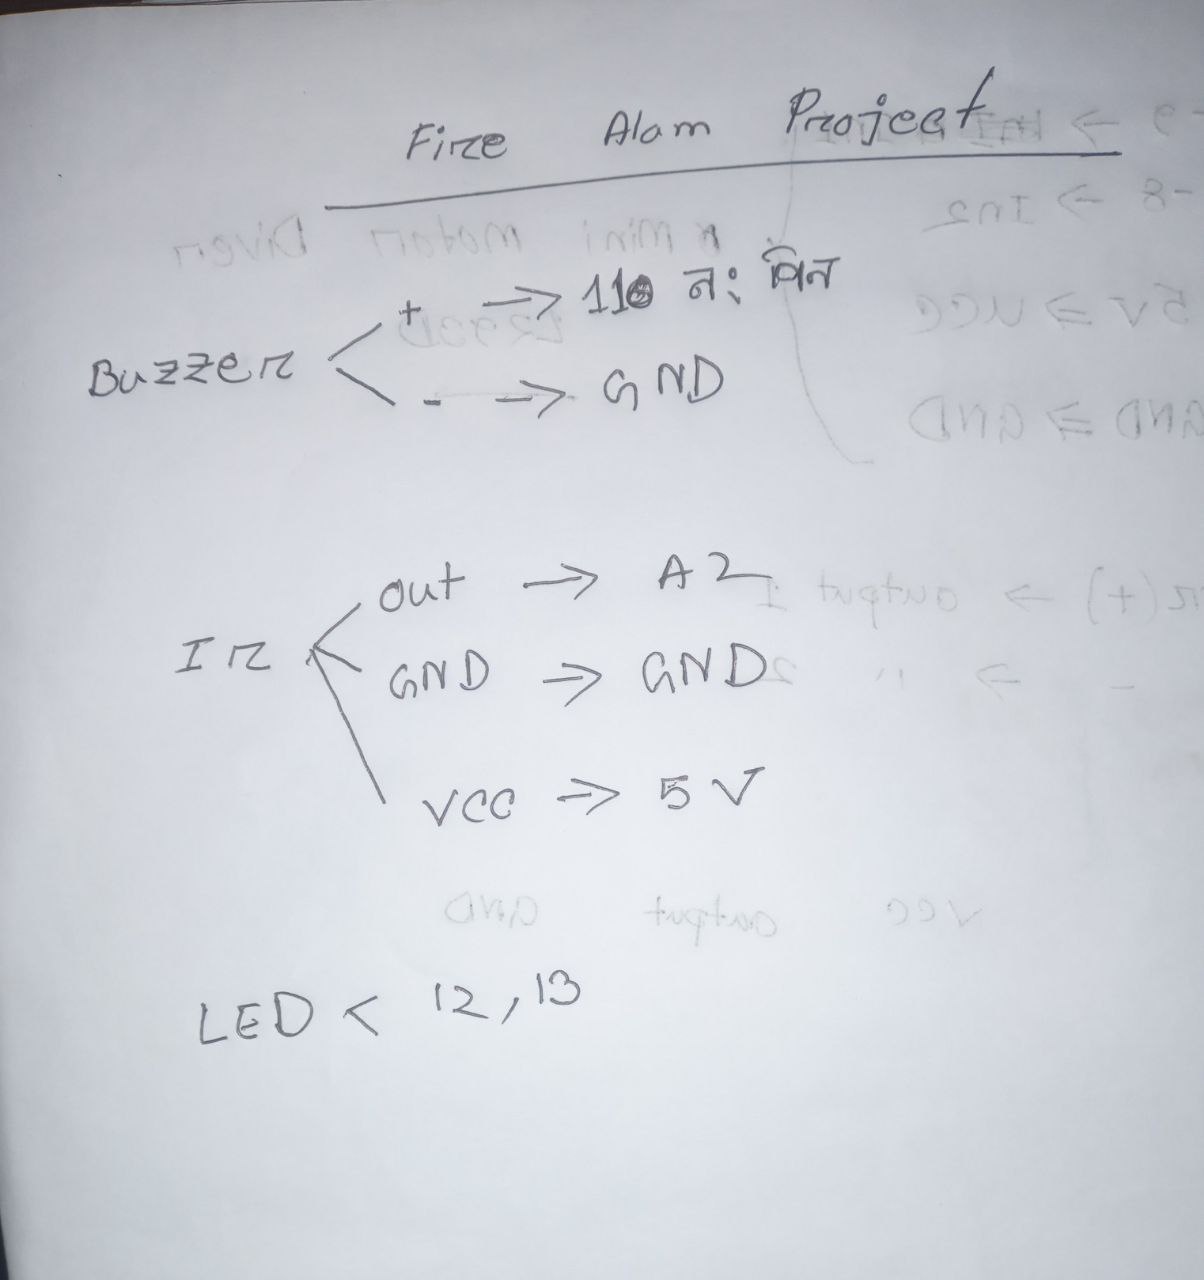 Fire Alam Project
Buzzer
+ → 11 নং পিন
- → GND
IR
out → A2
GND → GND
VCC → 5V
LED < 12, 13